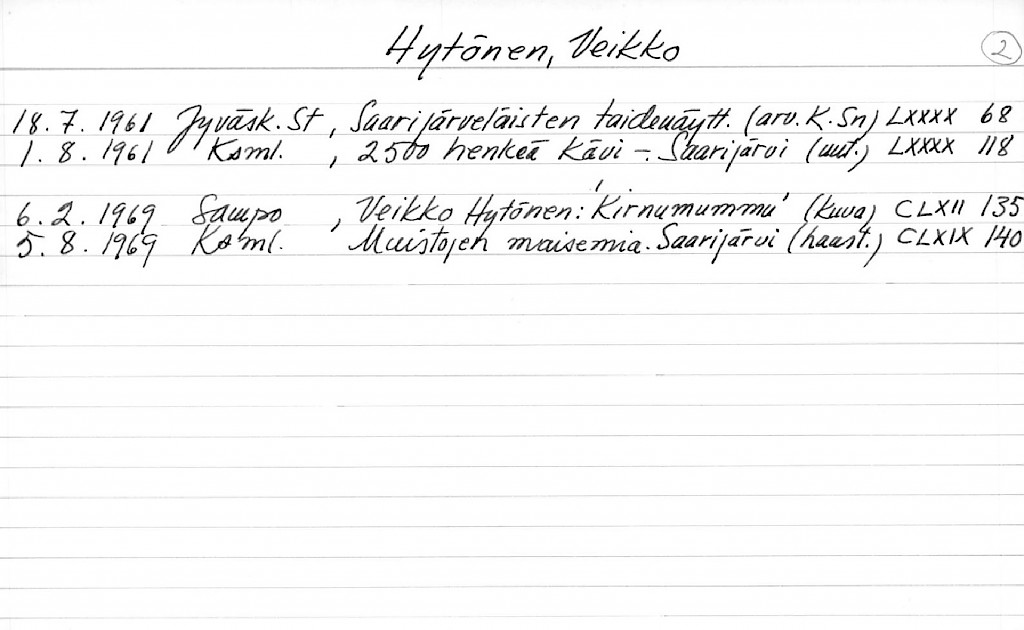 Hytönen, Veikko 2
18.7.1961 Jyväsk. St, Saarijärveläisten taidenäytt. (arv. K. Sn) LXXXX 68
1.8.1961 Ksml. , 2500 henkeä kävi - Saarijärvi (uut.) LXXXX 118
6.2.1969 Sampo , Veikko Hytönen: 'Kirnumummu' (kuva) CLXII 135
5.8.1969 Ksml. ' Muistojen maisemia. Saarijärvi (haast.) CLXIX 140